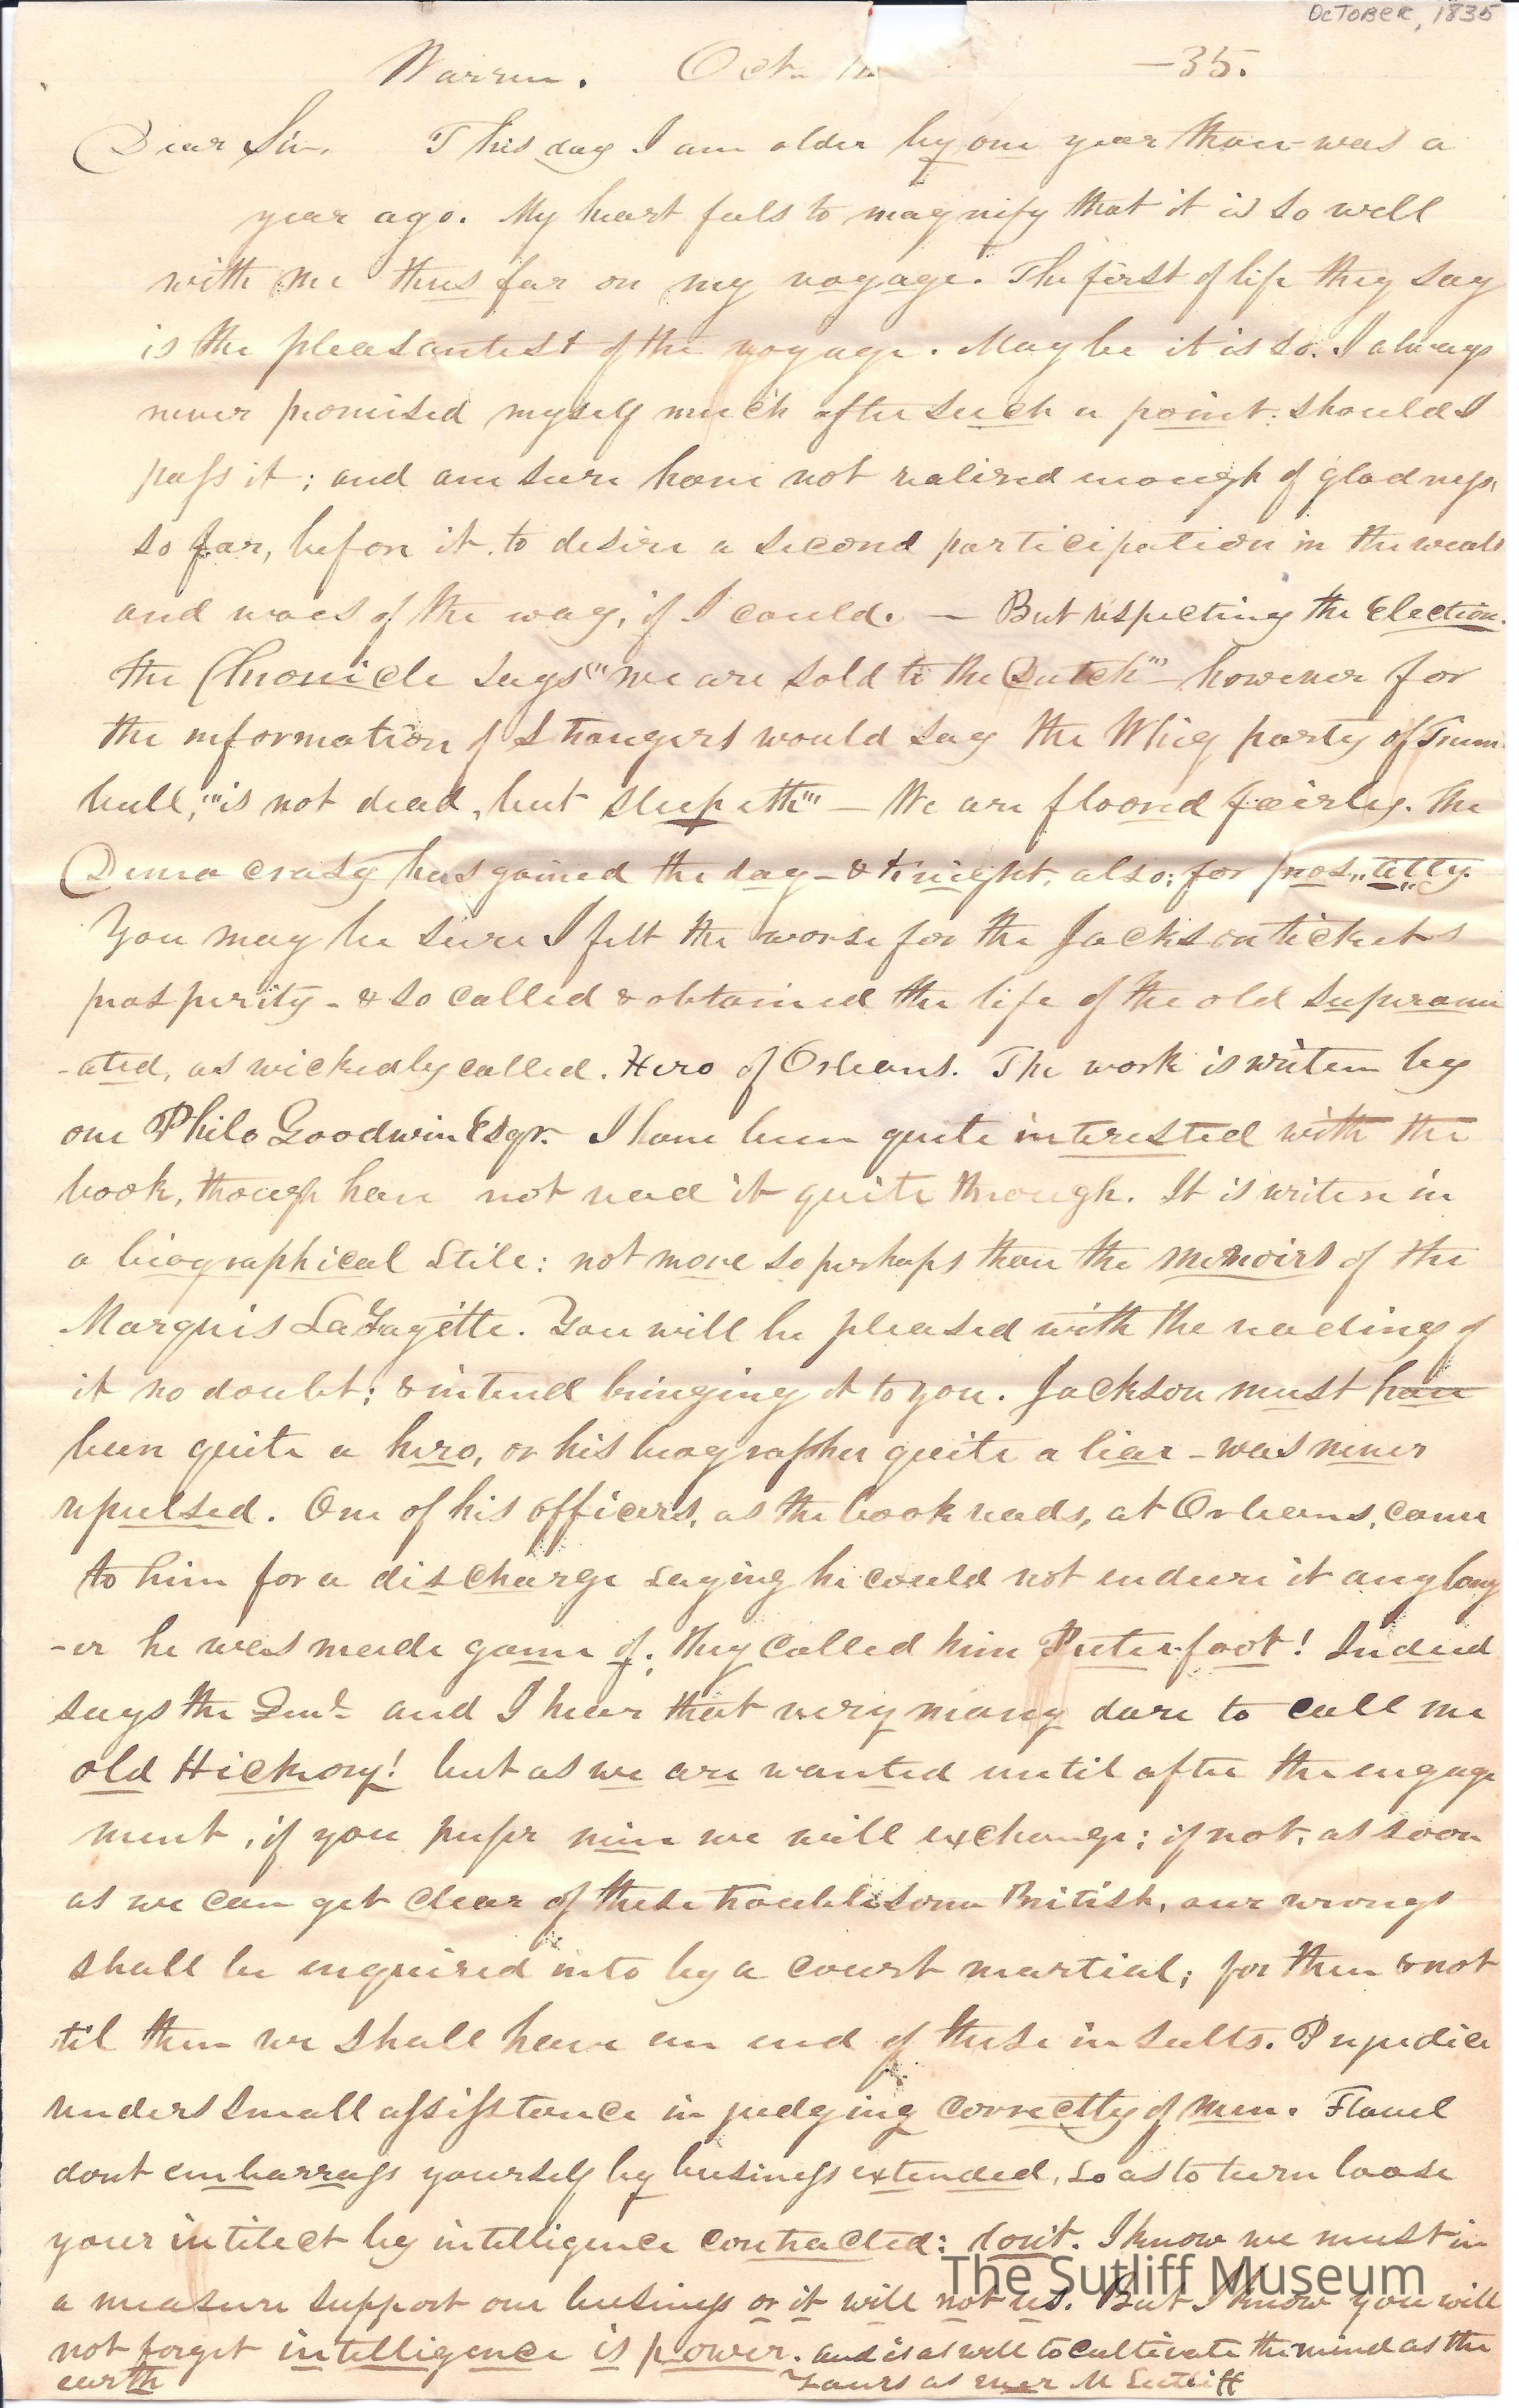 OCTOBER, 1835
Warren. Oct. 1 -35.
Dear Sir, This day I am older by one year than was a
year ago. My heart feels to magnify that it is so well
with me thus far on my voyage. The first of life they say
is the pleasantest of the voyage. May be it is so. I always
never promised myself much after such a point: should I
pass it; and am sure have not realised enough of gladness,
so far, before it, to desire a second participation in the weals
and woes of the way, if I could. — But respecting the Election.
the Chronicle says "'we are sold to the Dutch"' — however for
the information of strangers would say the Whig party of Trum-
bull, "'is not dead, but sleepeth"' — We are floored fairly. The
Democrasy has gained the day - & knight, also; for pros,,telty.
You may be sure I felt the worse for the Jackson tickets
prosperity - & so called & obtained the life of the old superanu
-ated, as wickedly called. Hero of Orleans. The work is writen by
one Philo Goodwin Esqr. I have been quite interested with the
book, though have not read it quite through. It is writen in
a biographical stile: not more so perhaps than the memoirs of the
Marquis LaFayette. You will be pleased with the reading of
it no doubt; & intend bringing it to you. Jackson must have
been quite a hero, or his biographer quite a liar - was never
repulsed. One of his officers, as the book reads, at Orleans, came
to him for a discharge saying he could not endure it any long
-er he was made game of; they called him Peterfoot! Indeed
says the Genl. and I hear that very many dare to call me
old Hickory! but as we are wanted until after the engage
ment, if you prefer mine we will exchange; if not, as soon
as we can get clear of these troublesome British, our wrongs
shall be enquired into by a court martial; for then & not
til then we shall have an end of these insults. Prejudice
renders small assistance in judging correctly of men. Flavel
dont embarrass yourself by business extended, so as to turn loose
your intilect by intelligence contracted: dont. I know we must in
a measure support our business or it will not us. But I know you will
not forget intelligence is power. and is as well to cultivate the mind as the
earth
Yours as ever M Sutliff
The Sutliff Museum